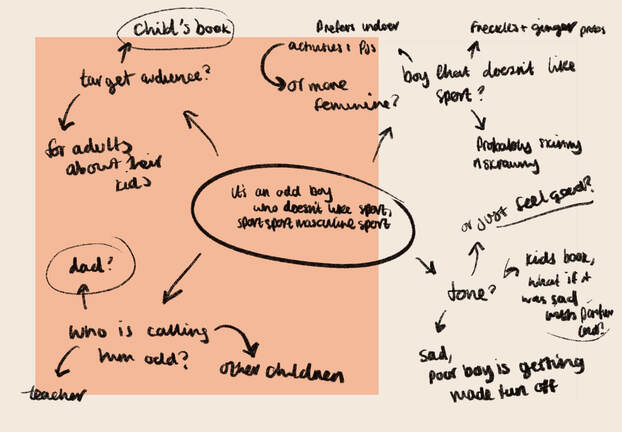 child's book
target audience?
for adults
about their
kids
Prefers indoor
activities, PJs
or more
feminine?
Freckles + ginger probs
boy that doesn't like
sport?
Probably skinny
n scrawny
it's an odd boy
who doesn't like sport,
sport sport masculine sport
or just feel good?
tone?
kids book,
what if it
was sad
sad,
poor boy is getting
made fun off
dad?
who is calling
him odd?
teacher
other children